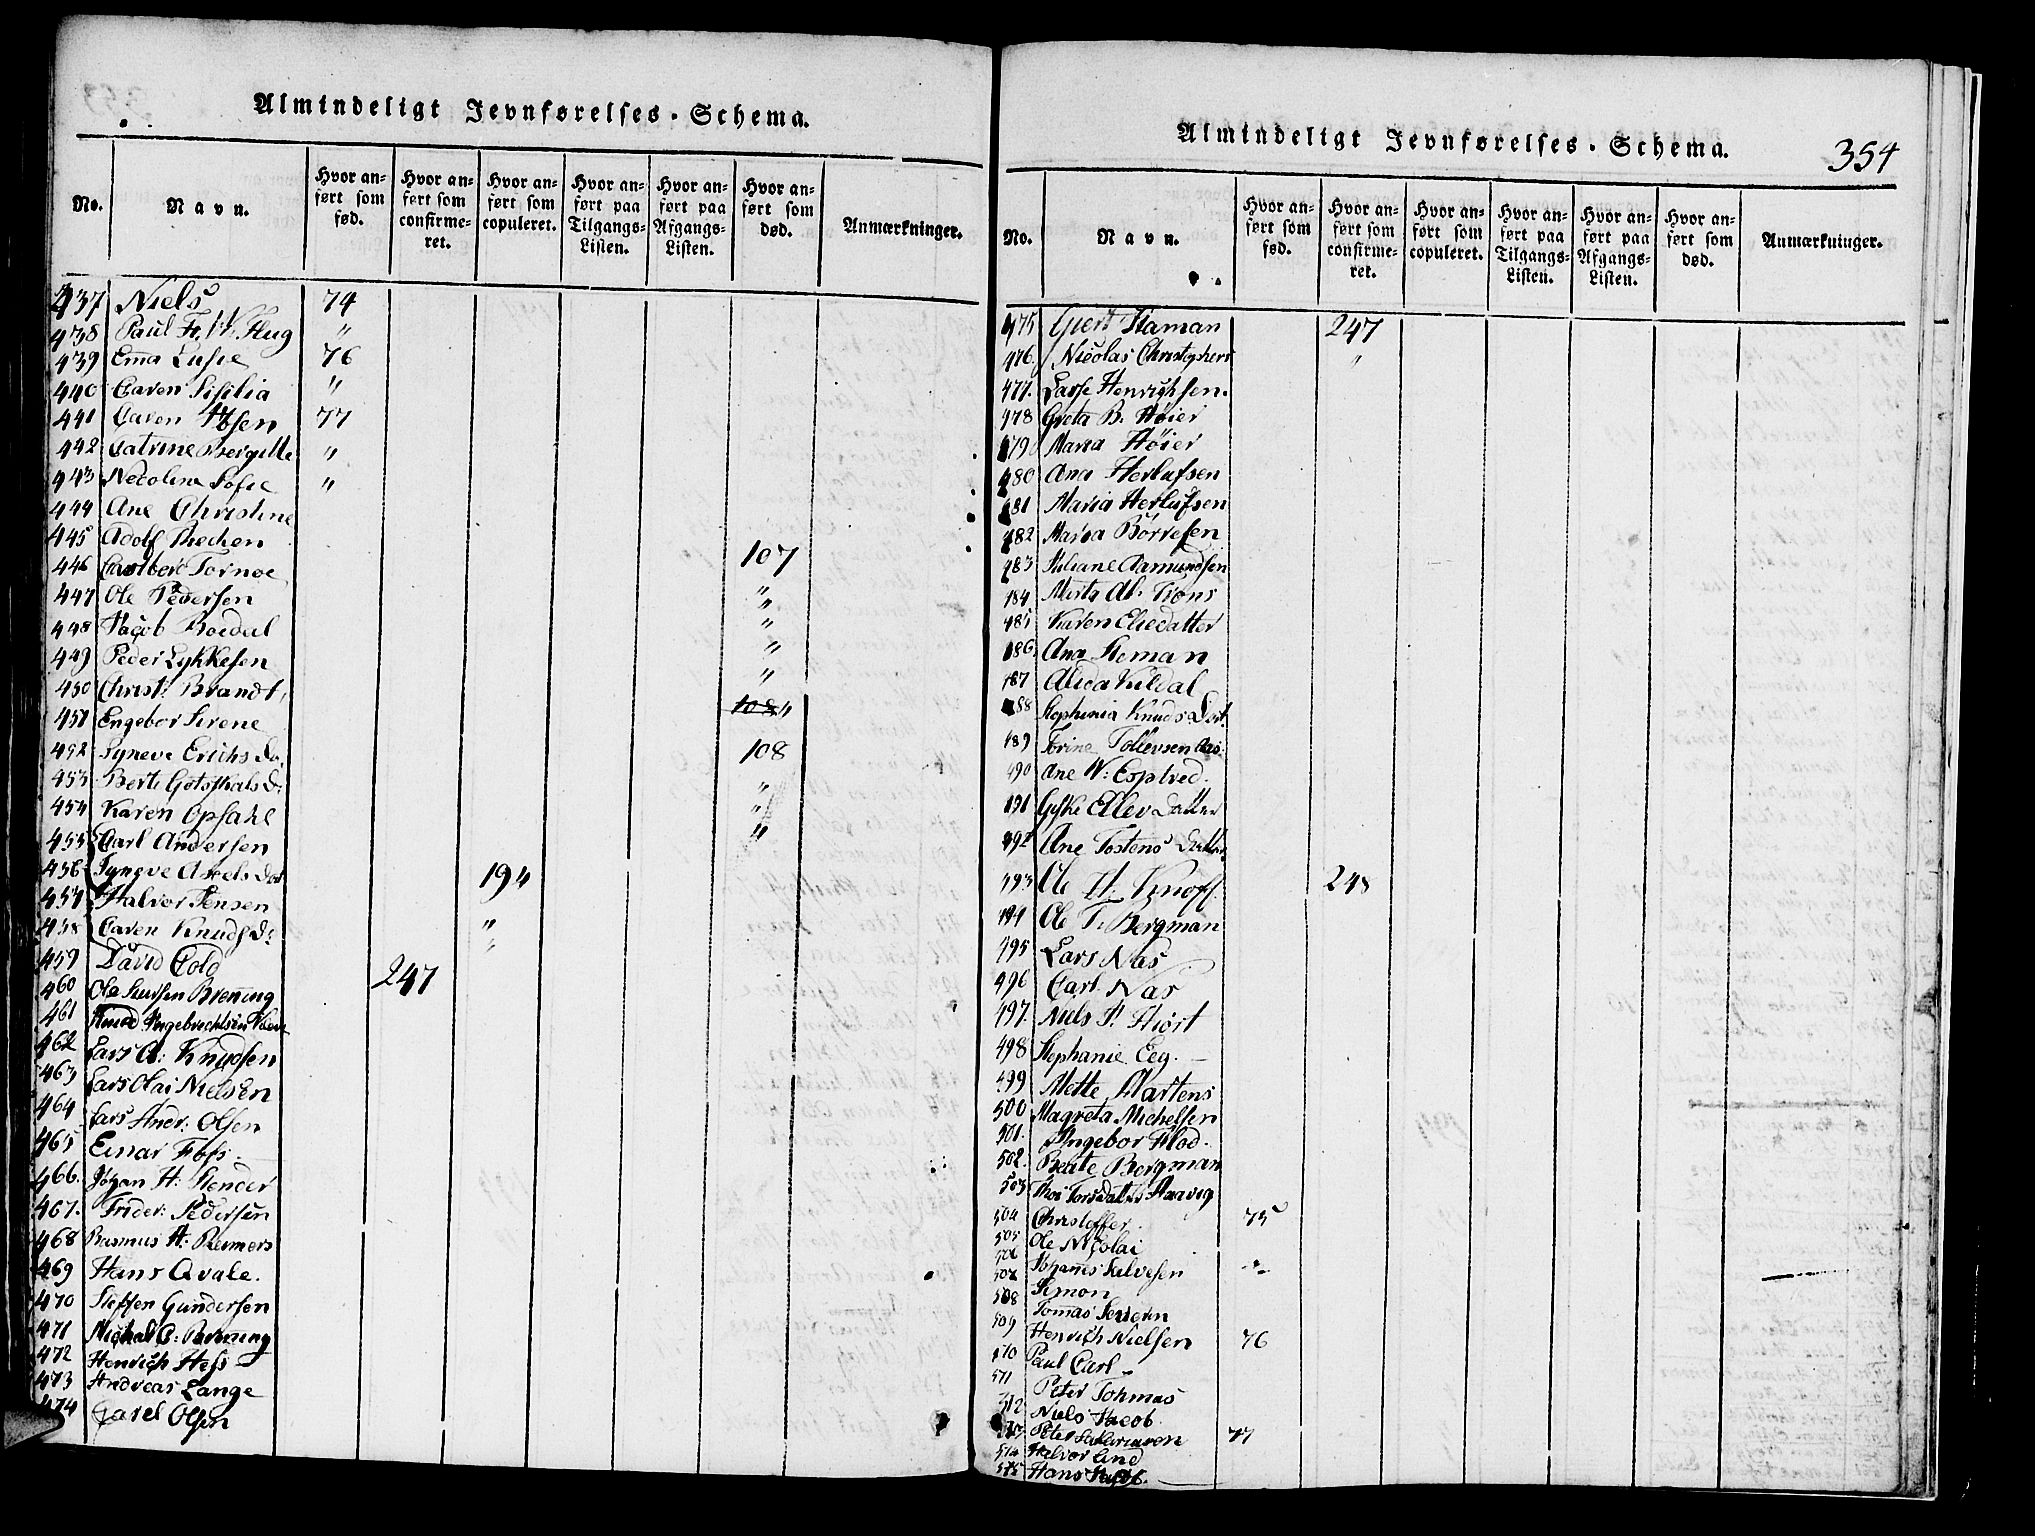 Almindeligt Jevnførelses-Schema.
No. Navn. Hvor anført som fød. Hvor anført som confirmeret. Hvor anført som copuleret. Hvor anført paa Tilgangs-Listen. Hvor anført paa Afgangs-Listen. Hvor anført som død. Anmærkninger.
437 Niels 74
438 Paul Fr. W. Flug "
439 Ema Lusie 76
440 Caren Sisilia "
441 Caren 77
442 Catrine Bergitte "
443 Necoline Sofie "
444 Ane Christine
445 Adolf Thechen
446 Tornoe 107
447 Ole Pedersen "
448 Jacob Roedal "
449 Peder Lykkesen "
450 Christ: Brandt, "
451 Engebor Serene 108 "
452 Syneve Erichs Da. 108
453 Berte Gotskals D: "
454 Karen Opsahl "
455 Carl Andersen "
456 Syneve Axels Dat 194
457 Halvor Jensen
458 Caren Knuds D: "
459 David Cold "
460 Ole Brening 247
461 Knud Ingebrechtsen
462 Lars A: Knudsen
463 Lars Olai Nielsen
464 Lars Andr: Olsen
465 Einar Foss
466. Johan H: Stender
467. Frider: Pedersen
468 Rasmus H: Reimers
469 Hans Qvale.
470 Steffen Gundersen
471 Michal C: Brening
472 Henrich Hess
473 Andreas Lange
474 Carel Olsen
Almindeligt Jevnførelses-Schema.
354
No. Navn. Hvor anført som fød. Hvor anført som confirmeret. Hvor anført som copuleret. Hvor anført paa Tilgangs-Listen. Hvor anført paa Afgangs-Listen. Hvor anført som død. Anmærkninger.
475 Giert Haman 247
476. Nicolas Christophers "
477. Lasse Henrichsen.
478 Greta B. Høier
479 Maria Høier
480 Ana Herlufsen
481 Maria Herlufsen
482 Maria Börresen
483 Juliane Aamundsen
484 Al. Trons
485 Karen Eliedatter
486 Ana Steman
487 Alida Kuldal
488 Stephenia Knuds Dat.
489 Torine Tollevsen
490 Ane W: Espeved.
491 Giske Ellev Datter
492 Ane Tostens Datter
493 Ole H. Knoff. 248
494 Ole T. Bergman
495 Lars Nas
496 Carl Nas
497. Niels P. Hiort
498 Stephanie Eeg.
499 Mette Martens
500 Magreta Michelsen
501. Ingebor Flod.
502. Beate Bergman
503 Torsdatter Haavig
504 Christoffer. 75
505 Ole Nicolai
506 Johannes Salvesen "
507 Simon
508 Tomas Severin
509 Henrich Nielsen 76
510 Paul Carl
511 Peter Tohmas
512 Niels Jacob
513 Peter 77
514 Halvor Lind
515 Hans Jacob.